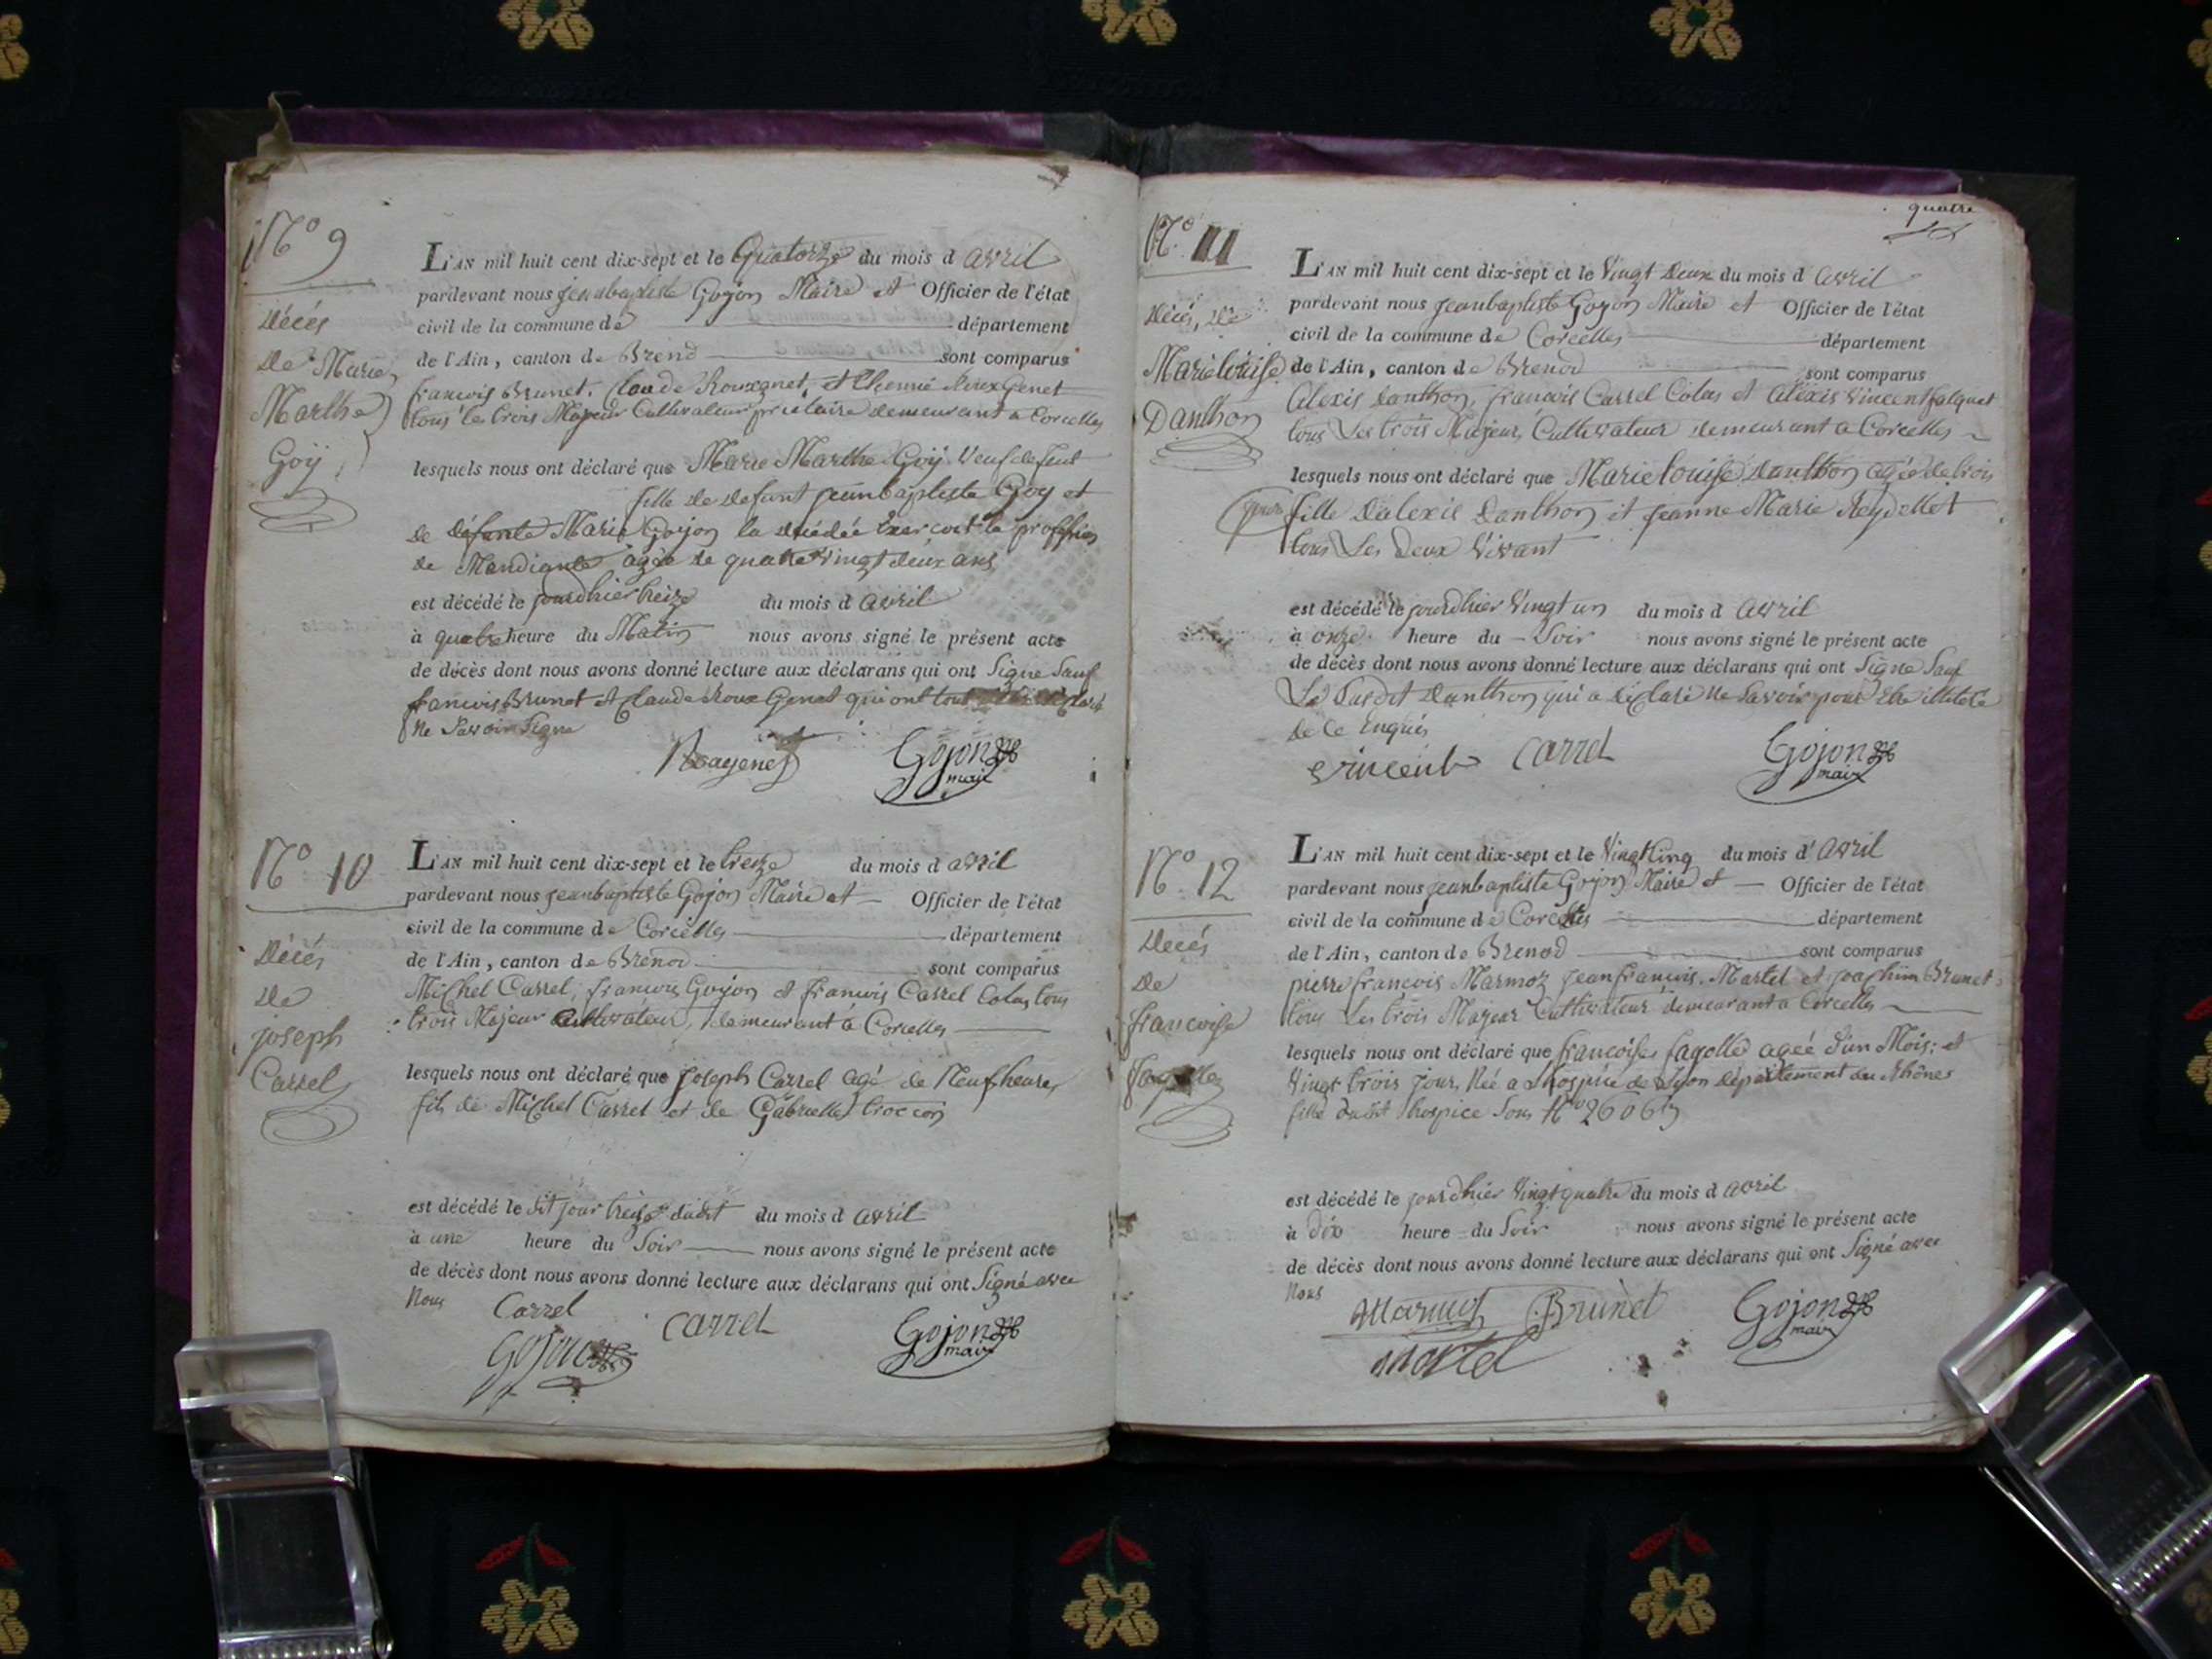 N° 9
Décés
de Marie
Marthe
Goÿ
L'AN mil huit cent dix-sept et le Quatorze du mois d avril
pardevant nous jeanbaptiste Gojon Maire et Officier de l'état
civil de la commune de département
de l'Ain, canton de Brenod sont comparus
francois Brunet, Claude Rouxgenet, et Etienne Rouxgenet
tous les trois Majeur Cultivateur demeurant a Corcelles
lesquels nous ont déclaré que Marie Marthe Goÿ
fille de defunt jeanbaptiste Goy et
de défunte Marie Gojon la décédée Exercoit la proffession
de Mandiante agée de quatre vingt deux ans
est décédé le jourdhier treize du mois d avril
à quatre heure du Matin nous avons signé le présent acte
de décès dont nous avons donné lecture aux déclarans qui ont Signe Sauf
francois Brunet et Claude Roux Genet qui ont tous
Ne Savoir Signe
Gojon
maire
N° 10
Décés
De
joseph
Carrel
L'AN mil huit cent dix-sept et le treize du mois d avril
pardevant nous jeanbaptiste Gojon Maire et Officier de l'état
civil de la commune de Corcelles département
de l'Ain, canton de Brenod sont comparus
Michel Carrel, francois Gojon et francois Carrel Colas tous
trois Majeur Cultivateur, demeurant a Corcelles
lesquels nous ont déclaré que joseph Carrel agé de Neuf heures
fils de Michel Carrel et de Gabrielle troccon
est décédé le dit jour treize dudit du mois d avril
à une heure du Soir nous avons signé le présent acte
de décès dont nous avons donné lecture aux déclarans qui ont Signé avec
Nous
Carrel
carrel
Gojon
Gojon
maire
quatre
N° 11
Décés, de
Marielouise
Danthon
L'AN mil huit cent dix-sept et le Vingt deux du mois d avril
pardevant nous jeanbaptiste Gojon Maire et Officier de l'état
civil de la commune de Corcelles département
de l'Ain, canton de Brenod sont comparus
Alexis Danthon, francois Carrel Colas et Alexis Vincent falquet
tous Les trois Majeur, Cultivateur demeurant a Corcelles
lesquels nous ont déclaré que Marielouise Danthon agée de trois
jours fille Dalexis Danthon et jeanne Marie Reydellet
tous Les Deux Vivant
est décédé le jourdhier Vingt un du mois d avril
à onze heure du Soir nous avons signé le présent acte
de décès dont nous avons donné lecture aux déclarans qui ont Signe Sauf
Le Susdit Danthon qui a déclaré Ne Savoir pour être illitéré
de ce Enquis
vincent
carrel
Gojon
maire
N° 12
Décés
de
francoise
L'AN mil huit cent dix-sept et le Vingt Cinq du mois d' avril
pardevant nous jeanbaptiste Gojon Maire et Officier de l'état
civil de la commune de Corcelles département
de l'Ain, canton de Brenod sont comparus
pierre francois Marmoz jeanfrancois Martel et joachim Brunet
tous Les trois Majeur Cultivateur demeurant a Corcelles
lesquels nous ont déclaré que francoise fagolle agée d'un Mois et
Vingt trois jour, Né a Lhospice de Lyon département du Rhône
fille dudit hospice Sous N° 26061
est décédé le jourdhier Vingt quatre du mois d avril
à dix heure du Soir nous avons signé le présent acte
de décès dont nous avons donné lecture aux déclarans qui ont Signé avec
Nous
Marmoz
Brunet
Martel
Gojon
maire